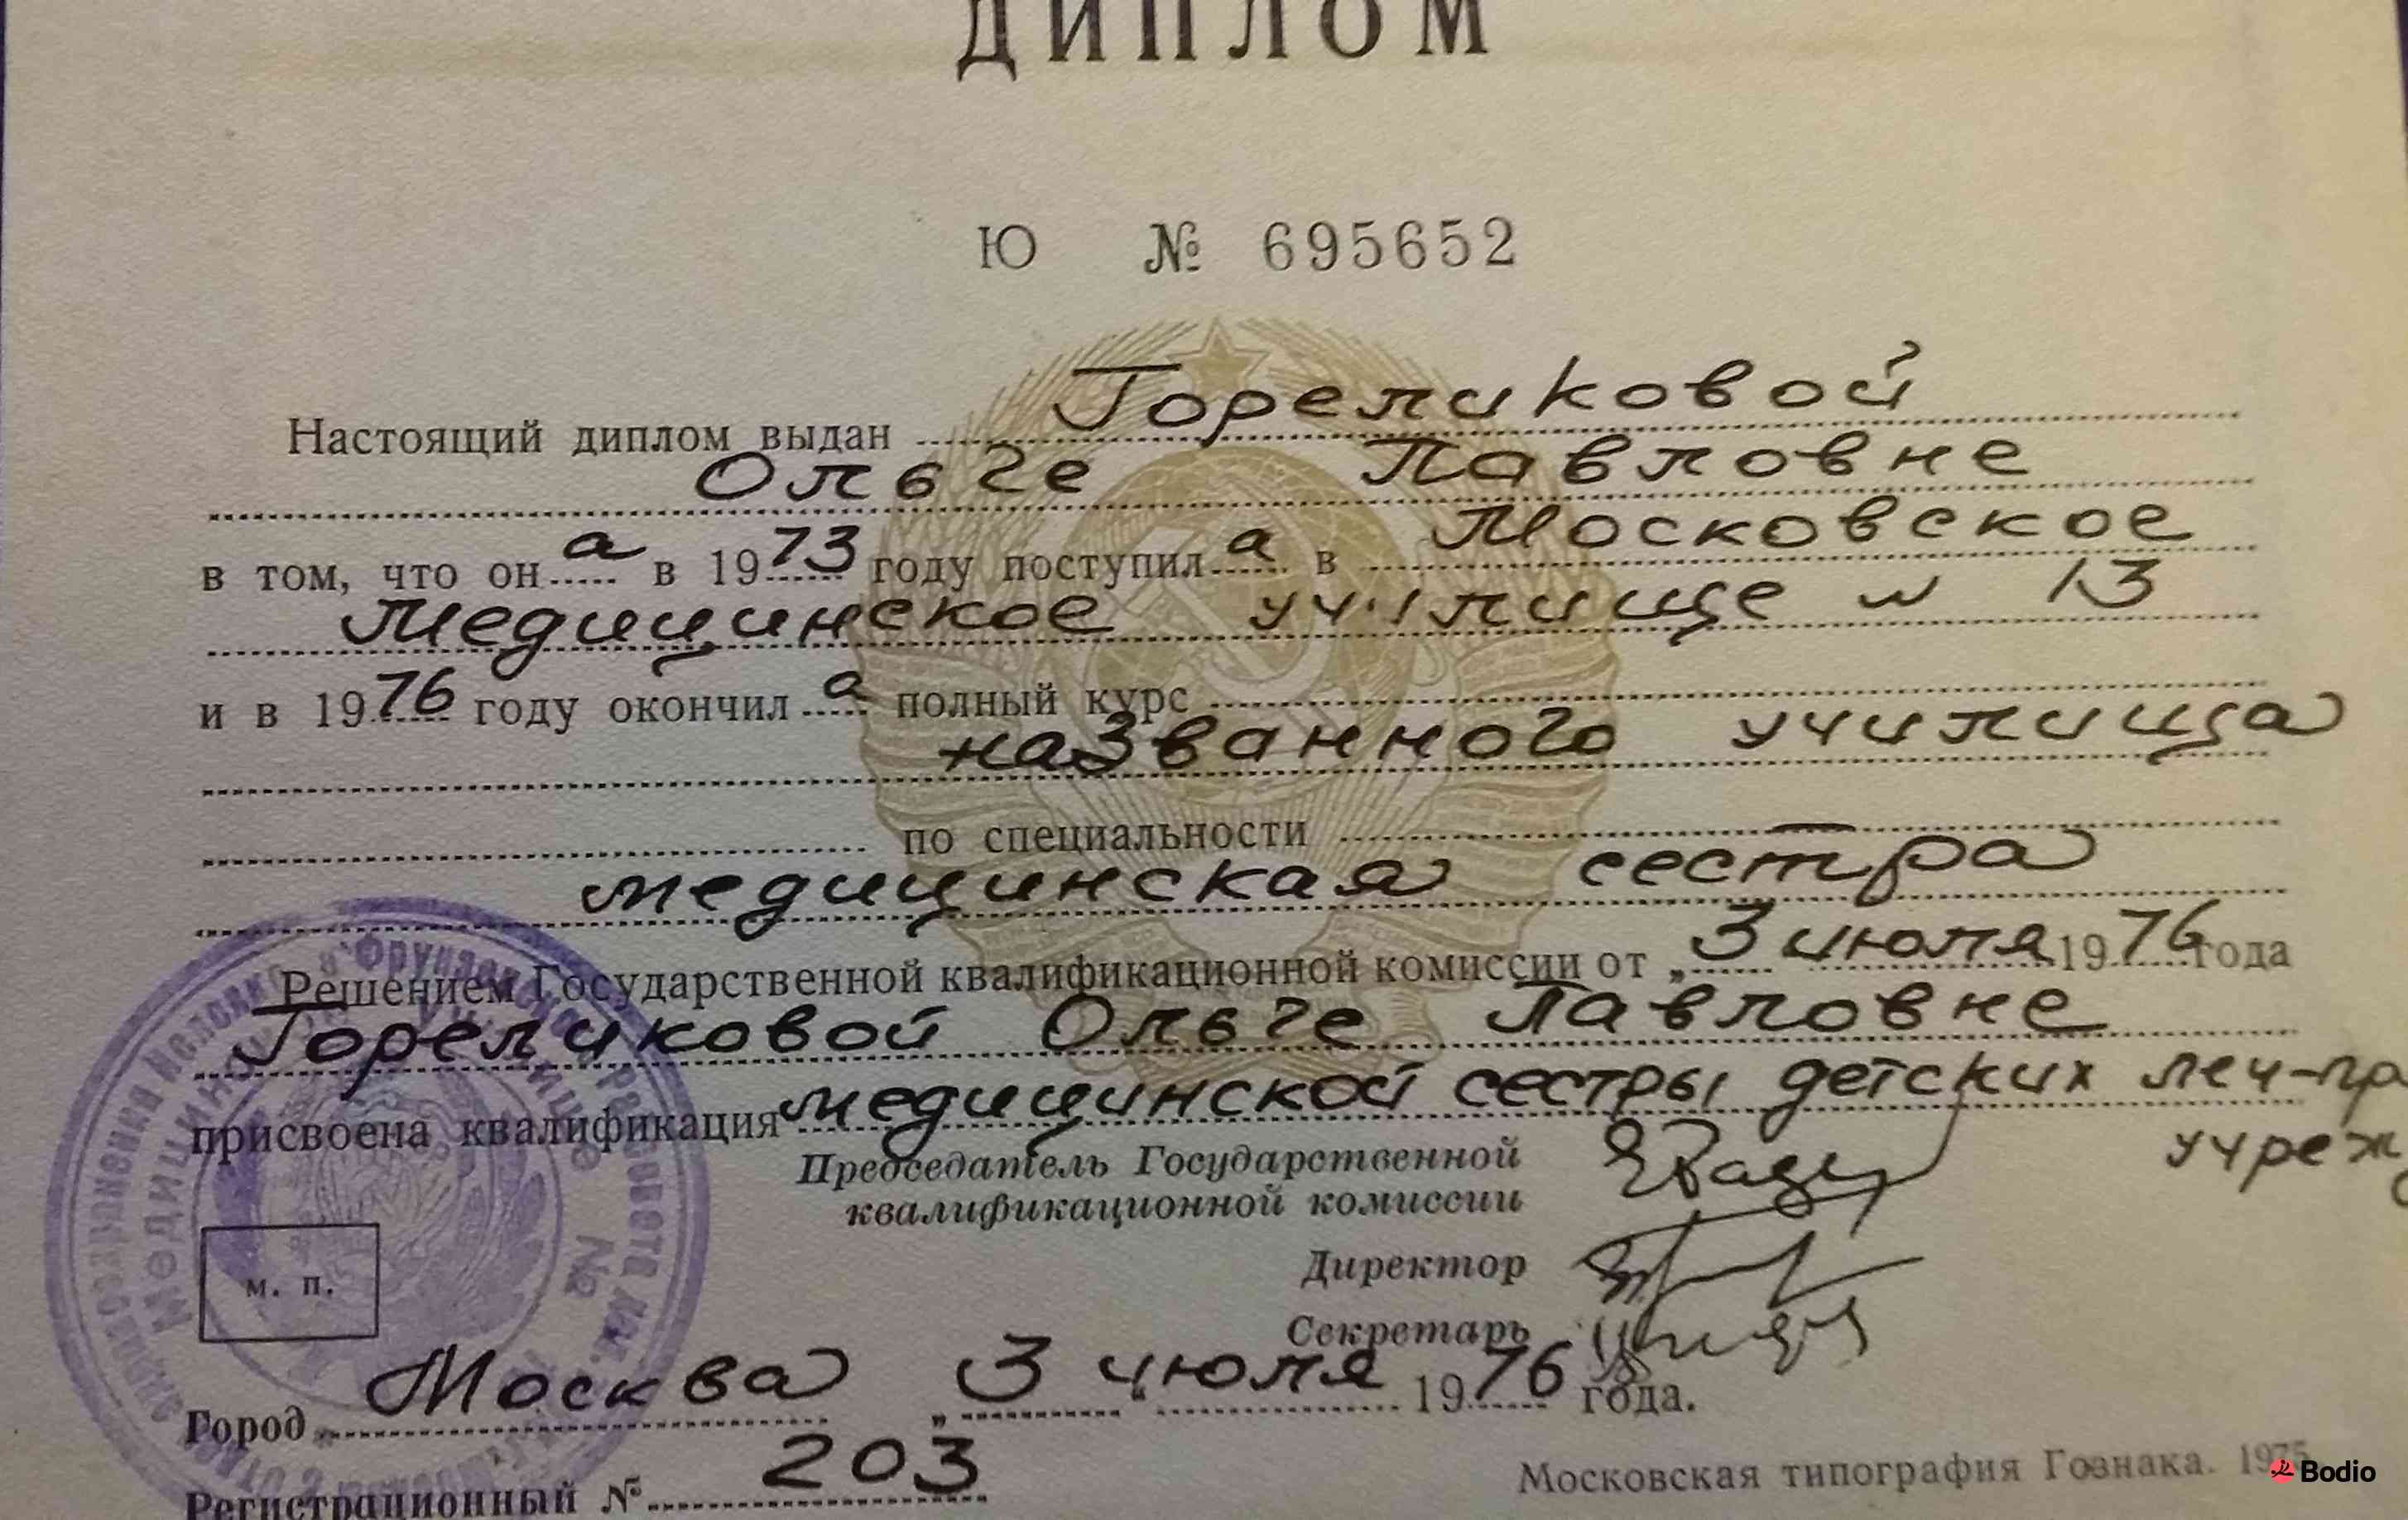 ДИПЛОМ
Ю № 695652
Настоящий диплом выдан Гореликовой
Ольге Павловне
в том, что он а в 1973 году поступил а в Московское
медицинское училище N 13
и в 1976 году окончил а полный курс
названного училища
по специальности
медицинская сестра
Решением Государственной квалификационной комиссии от „3 июля 1976 года
Гореликовой Ольге Павловне
присвоена квалификация медицинской сестры детских леч-пр
учреж
Председатель Государственной
квалификационной комиссии
Директор
Секретарь
м. п.
Город Москва „3" июля 1976 года.
Регистрационный № 203
Московская типография Гознака. 1975.
Bodio